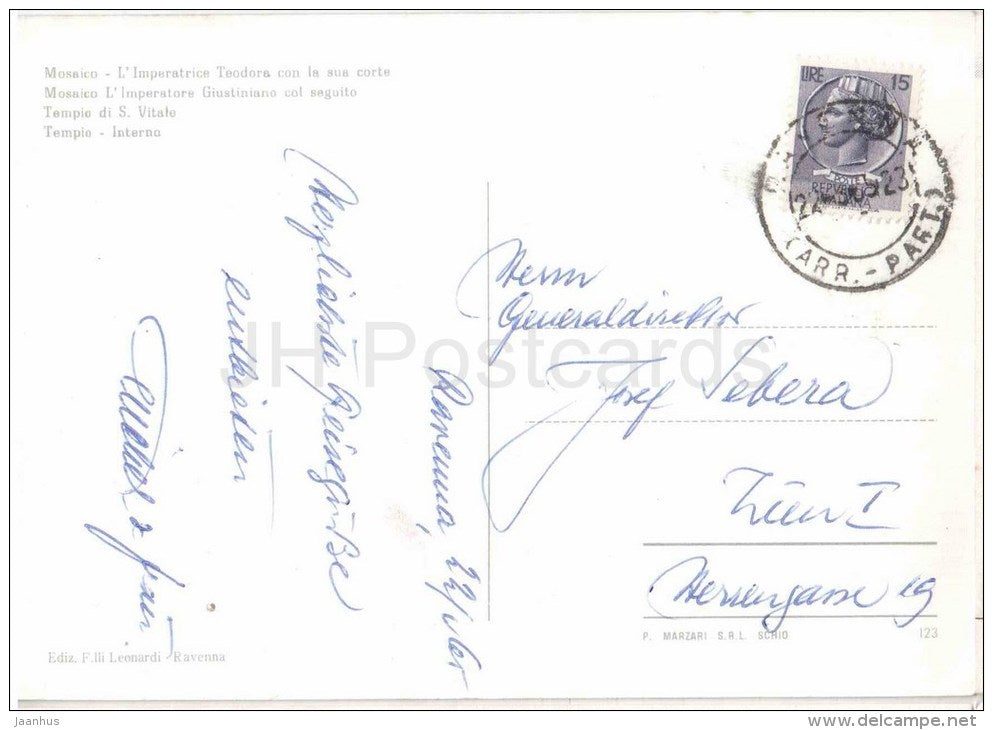 Mosaico - L'Imperatrice Teodora con la sua corte
Mosaico L'Imperatore Giustiniano col seguito
Tempio di S. Vitale
Tempio - Interno
LIRE 15
POSTE
REPVBBLICA
ITALIANA
RAVENNA
(ARR. - PART.)
Ravenna, 22/
Reisegrüße
entbieten
& Frau
Herrn
Generaldirektor
Josef Sebera
I
Herrengasse 19
Ediz. F.lli Leonardi - Ravenna
P. MARZARI S.R.L. SCHIO 123
JH Postcards
jaanhus
www.delcampe.net